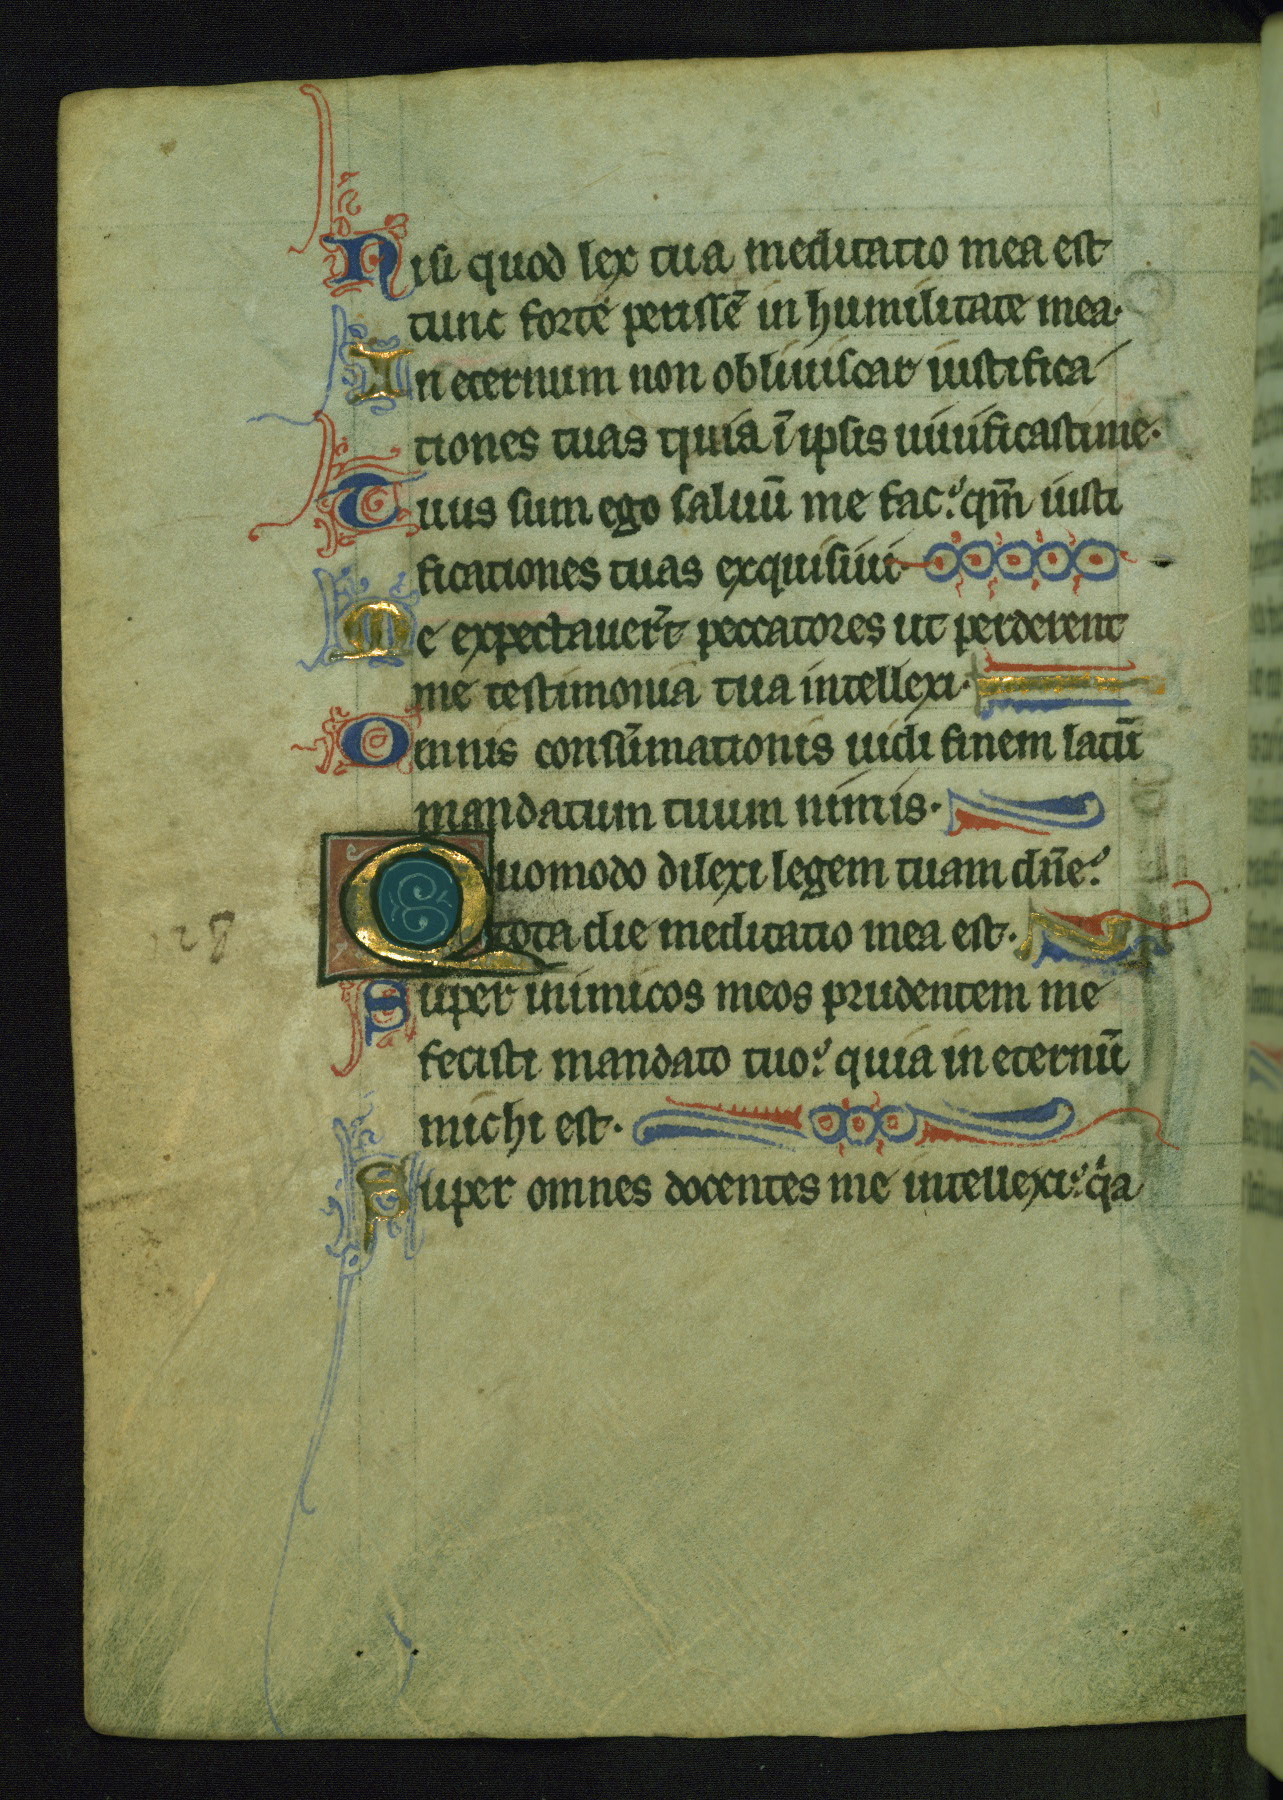 Nisi quod lex tua meditatio mea est
tunc forte perissē in humilitate mea.
In eternum non obliuiscar iustifica
tiones tuas quia ī ipsis uiuificasti me.
Tuus sum ego saluū me fac: qm̄ iusti
ficationes tuas exquisiui.
Me expectauer̄t peccatores ut perderent
me testimonia tua intellexi.
Omnis consūmationis uidi finem latū
mandatum tuum nimis.
Quomodo dilexi legem tuam dn̄e:
tota die meditatio mea est.
128
Super inimicos meos prudentem me
fecisti mandato tuo: quia in eternū
michi est.
Super omnes docentes me intellexi: qia